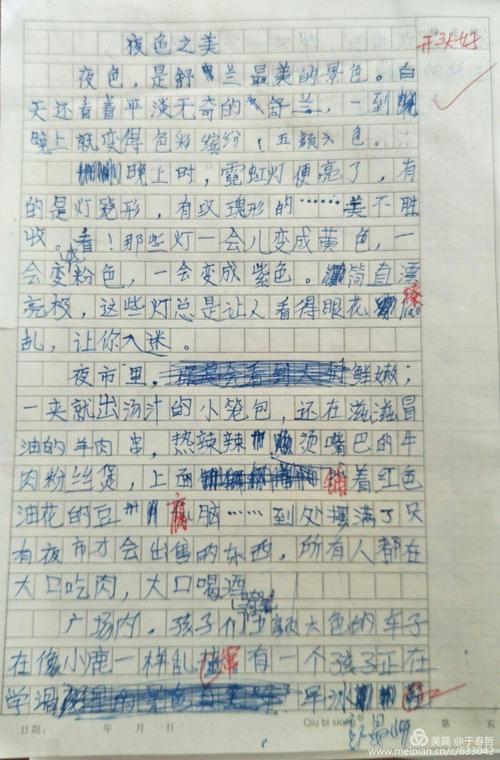 夜色之美
开头好
夜色，是舒兰最美的景色。白
天还看着平淡无奇的舒兰，一到
晚上就变得色彩缤纷，五颜六色。
晚上时，霓虹灯便亮了，有
的是灯笼形，有玫瑰形的……美不胜
收。看！那些灯一会儿变成黄色，一
会变成粉色，一会变成紫色。简直漂
亮极，这些灯总是让人看得眼花缭
乱，让你入迷。
夜市里，鲜嫩；
一夹就出汤汁的小笼包，还在滋滋冒
油的羊肉串，热辣辣烫嘴巴的牛
肉粉丝煲，上面铺着红色
油花的豆腐脑……到处摆满了只
有夜市才会出售的东西，所有人都在
大口吃肉，大口喝酒
广场内，孩子们五颜六色的车子
在像小鹿一样乱 有一个孩子正在
学滑
日期： 年 月 日
Qiu bi xiong
第 页
美篇 @于春哲
www.meipian.cn/c/633042